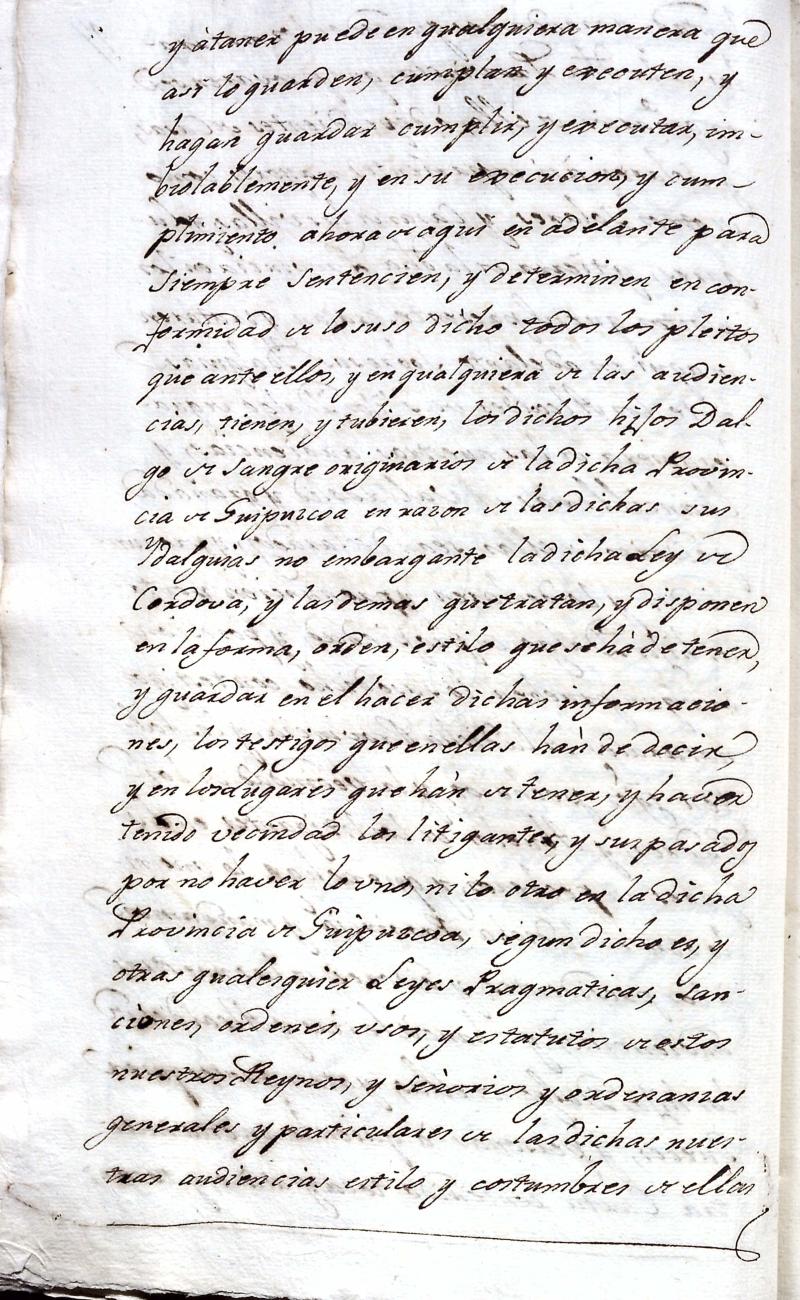 y àtaner puede en qualquiera manera que
asi lo guarden, cumplan y executen, y
hagan guardar cumplir, y executar, im-
biolablemente, y en su execucion, y cum-
plimiento ahora de aqui en adelante para
siempre sentencien, y determinen en con-
formidad de lo suso dicho todos los pleitos
que ante ellos, y en qualquiera de las audien-
cias, tienen, y tubieren, los dichos hijos Dal-
go de sangre originarios de la dicha Provin-
cia de Guipuzcoa en razon de las dichas sus
Ydalguias no embargante la dicha Ley de
Cordova, y las demas que tratan, y disponen
en la forma, orden, estilo que se hà de tener,
y guardar en el hacer dichas informacio-
nes, los testigos que en ellas hàn de decir,
y en los Lugares que hàn de tener, y haver
tenido vecindad los litigantes, y sus pasados
por no haver lo uno, ni lo otro en la dicha
Provincia de Guipuzcoa, segun dicho es, y
otras qualesquier Leyes Pragmaticas, San-
ciones, ordenes, usos, y estatutos de estos
nuestros Reynos, y señorios y ordenanzas
generales y particulares de las dichas nues-
tras audiencias estilo y costumbres de ellas